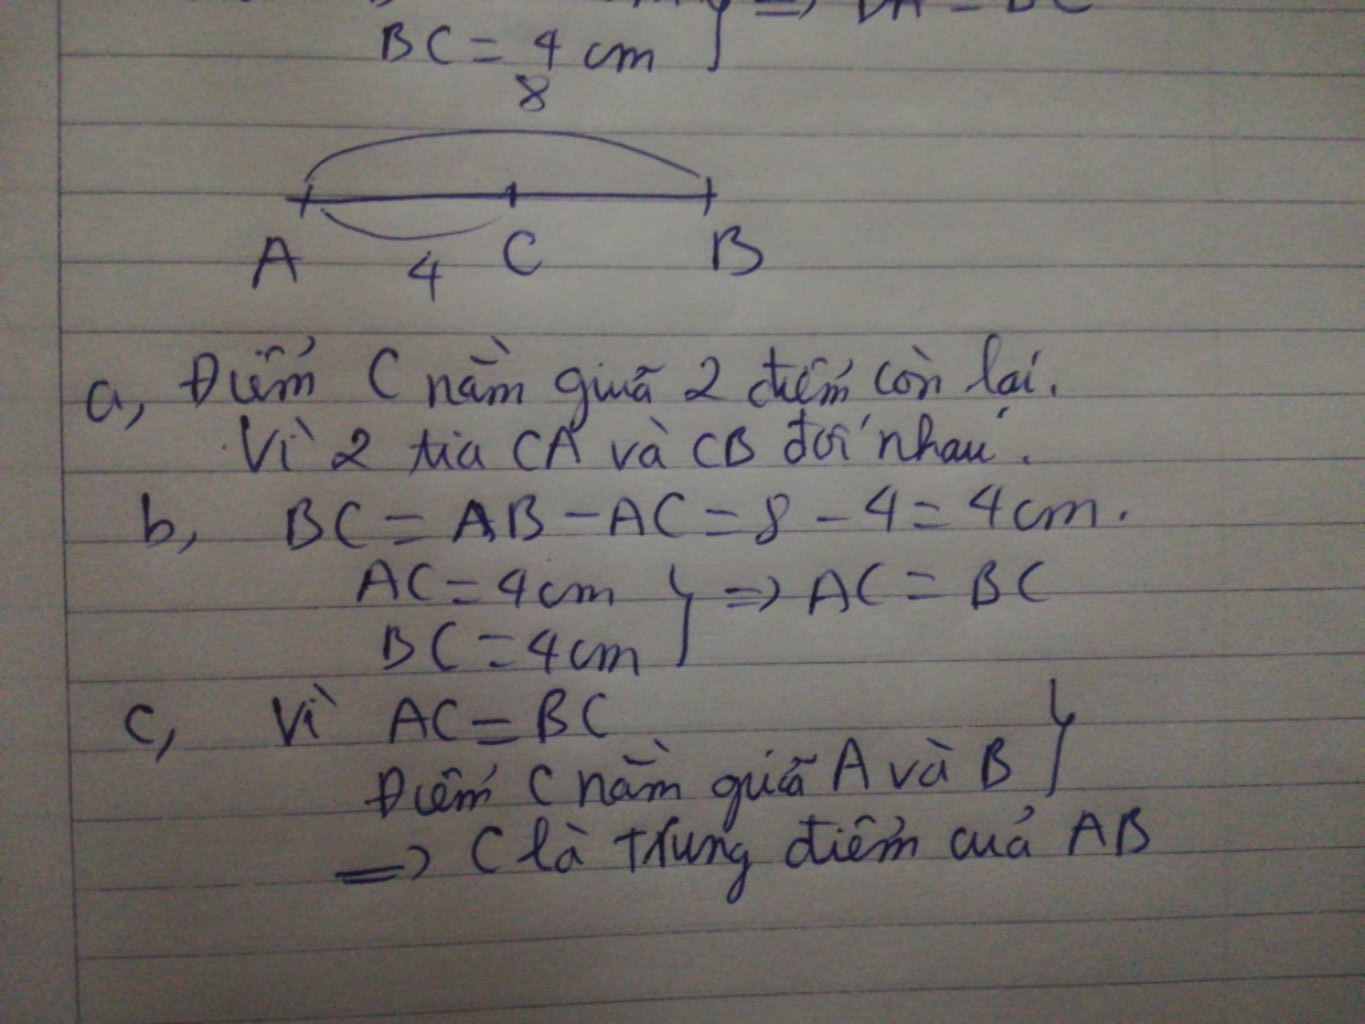 => BA = BC
BC = 4 cm }
8
A 4 C B
a, Điểm C nằm giữa 2 điểm còn lại.
Vì 2 tia CA và CB đối nhau.
b, BC = AB - AC = 8 - 4 = 4cm.
AC = 4cm } => AC = BC
BC = 4cm
c, Vì AC = BC }
Điểm C nằm giữa A và B
=> C là trung điểm của AB